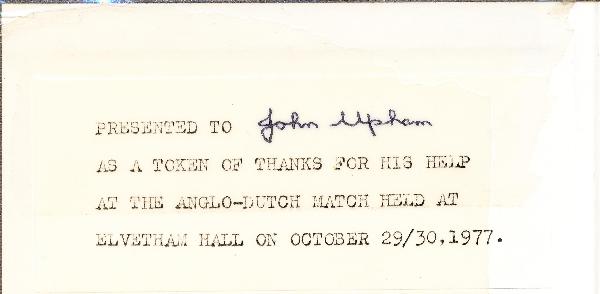 PRESENTED TO John Upham
AS A TOKEN OF THANKS FOR HIS HELP
AT THE ANGLO-DUTCH MATCH HELD AT
ELVETHAM HALL ON OCTOBER 29/30,1977.